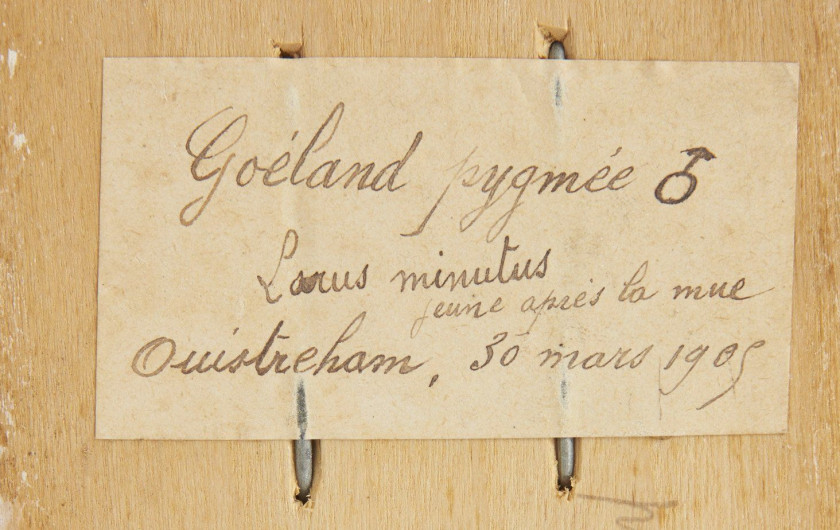 Goéland pygmée ♂
Larus minutus
jeune après la mue
Ouistreham, 30 mars 1905